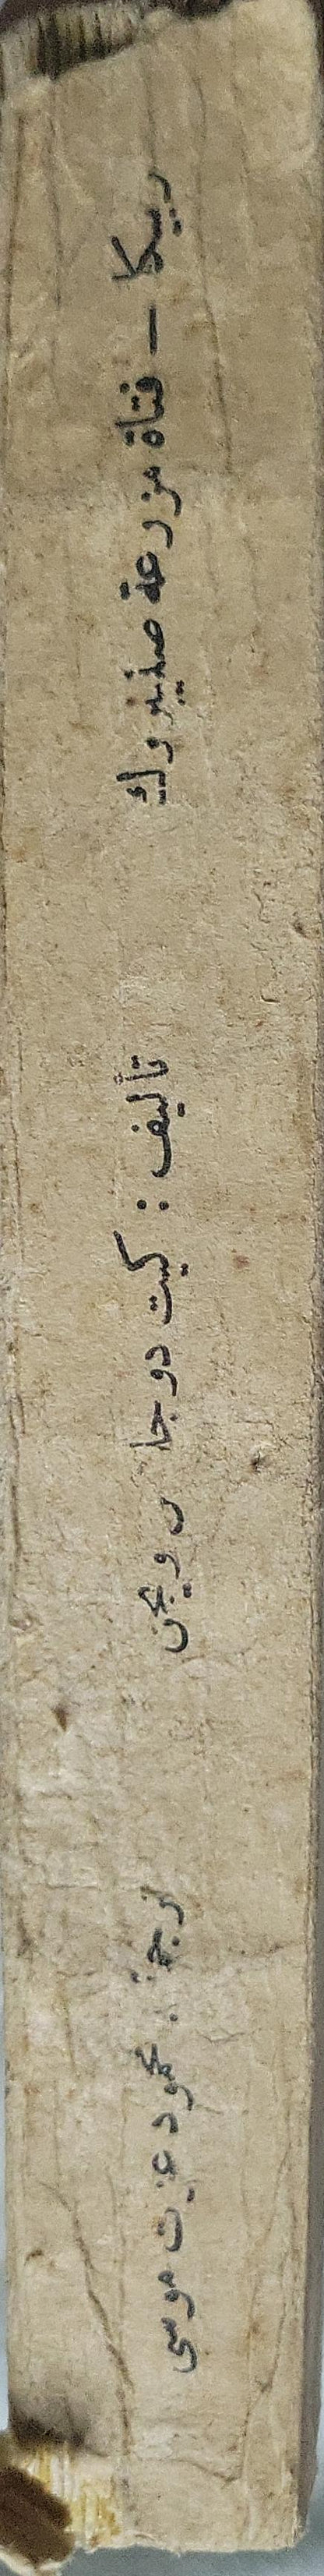 ريبكا – فتاة مزرعة صنيبروك
تأليف : كيت دوجلاس ويجن
ترجمة : محمود عزت موسى